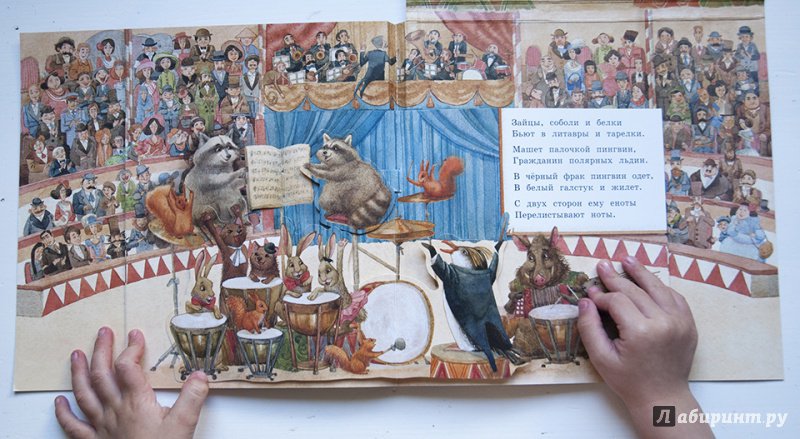 Зайцы, соболи и белки
Бьют в литавры и тарелки.
Машет палочкой пингвин,
Гражданин полярных льдин.
В чёрный фрак пингвин одет,
В белый галстук и жилет.
С двух сторон ему еноты
Перелистывают ноты.
Лабиринт.ру